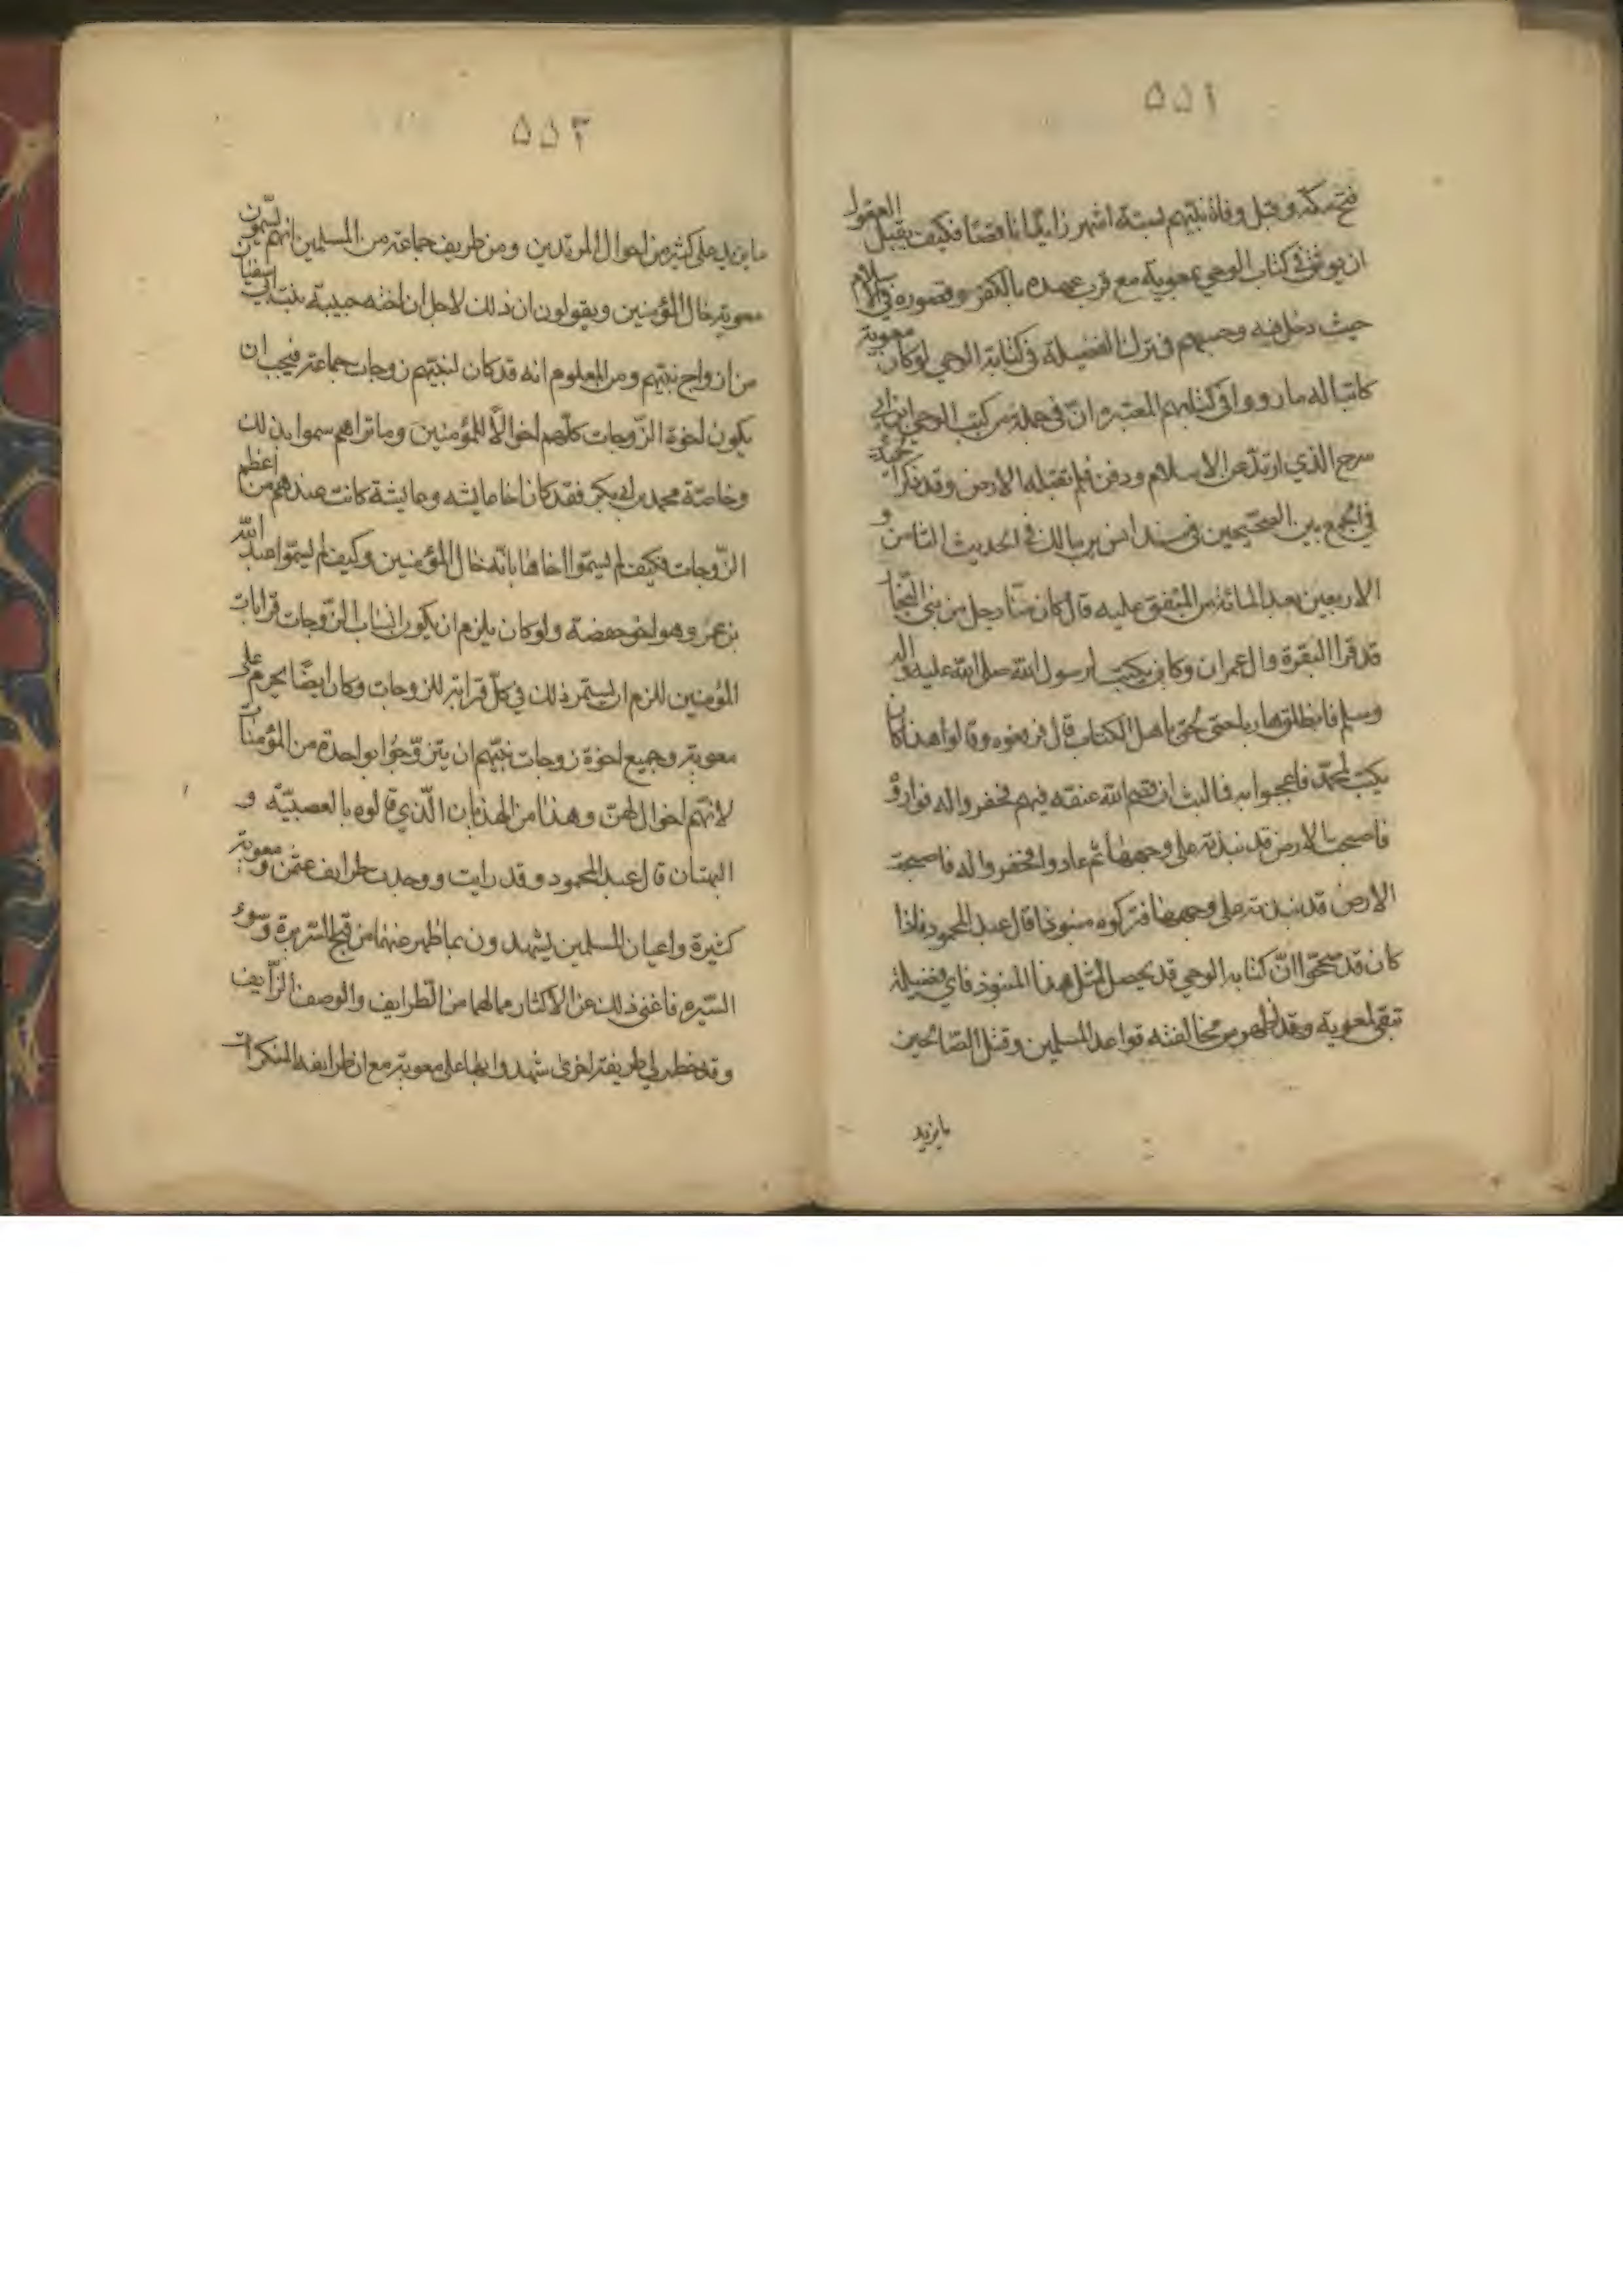 ۵۵۲
فتح مكة وقبل وفاة نبيّهم لستة اشهر زايدًا ناقصًا فكيف يقبل العقول
ان يوثق في كتاب الوحي بمعوية مع قرب عهده بالكفر وقصوره في الاسلام
حيث دخل فيه وحسبهم في ترك الفضيلة في كتابة الوحي لو كان معوية
كاتبا له ما رووا في كتابهم المعتبرة انّ في جملة من كتب الوحي ابن ابي
سرح الذي ارتد عن الاسلام ودفن فلم تقبله الارض وقد ذكر
في الجمع بين الصحّيحين في مسند انس بن مالك في الحديث الثامن و
الاربعين بعد المائة من المتفق عليه قال كان منّا رجل من بني النجّار
قد قرا البقرة وال عمران وكان يكتب لرسول الله صلى الله عليه واله
وسلم فانطلق هاربا حتى لحق باهل الكتاب قال فرفعوه وقالوا هذا كان
يكتب لمحمّد فاعجبوا به فما لبث ان قصم الله عنقه فيهم فحفروا له فواروه
فاصبحت الارض قد نبذته على وجهها ثم عادوا فحفروا له فاصبحت
الارض قد نبذته على وجهها فتركوه منبوذا قال عبد المحمود فاذا
كان قد صحّحوا انّ كتابة الوحي قد يحصل لمثل هذا المنبوذ فاي فضيلة
تبقى لمعوية وقد ظهر من مخالفته قواعد المسلمين وقتل الصّالحين
ما يزيد
۵۵۳
ما يزيد على كثير من احوال المرتدين ومن طريف جماعة من المسلمين انهم يسمّون
معوية خال المؤمنين ويقولون ان ذلك لاجل ان اخته حبيبة بنت ابي سفيان
من ازواج نبيّهم ومن المعلوم انه قد كان لنبيّهم زوجات جماعة فيجب ان
يكون اخوة الزّوجات كلّهم اخوالًا للمؤمنين وما تراهم سموا بذلك
وخاصّة محمد بن ابي بكر فقد كان اخا عايشه وعايشة كانت عندهم من اعظم
الزّوجات فكيف لم يسمّوا اخاها بانّه خال المؤمنين وكيف لم يسمّوا عبد الله
بن عمر وهو اخو حفصة ولو كان يلزم ان يكون انساب الزّوجات قرابات
المؤمنين للزم ان يستمر ذلك في كلّ قرابة للزوجات وكان ايضًا يحرم على
معوية وجميع اخوة زوجات نبيّهم ان يتزوّجوا بواحدة من المؤمنات
لانّهم اخوال لهنّ وهذا من الهذيان الّذي قالوه بالعصبيّة و
البهتان قال عبد المحمود وقد رايت ووجدت طرايف عثمن ومعوية
كثيرة واعيان المسلمين يشهدون بما ظهر عنهما من قبح السّريرة وسوء
السّيره فاغنى ذلك عن الاكثار مما لهما من الطّرايف والوصف الزّايف
وقد خطر لي طريفة اخرى شهدوا بها على معوية مع ان طرايفه المنكرات